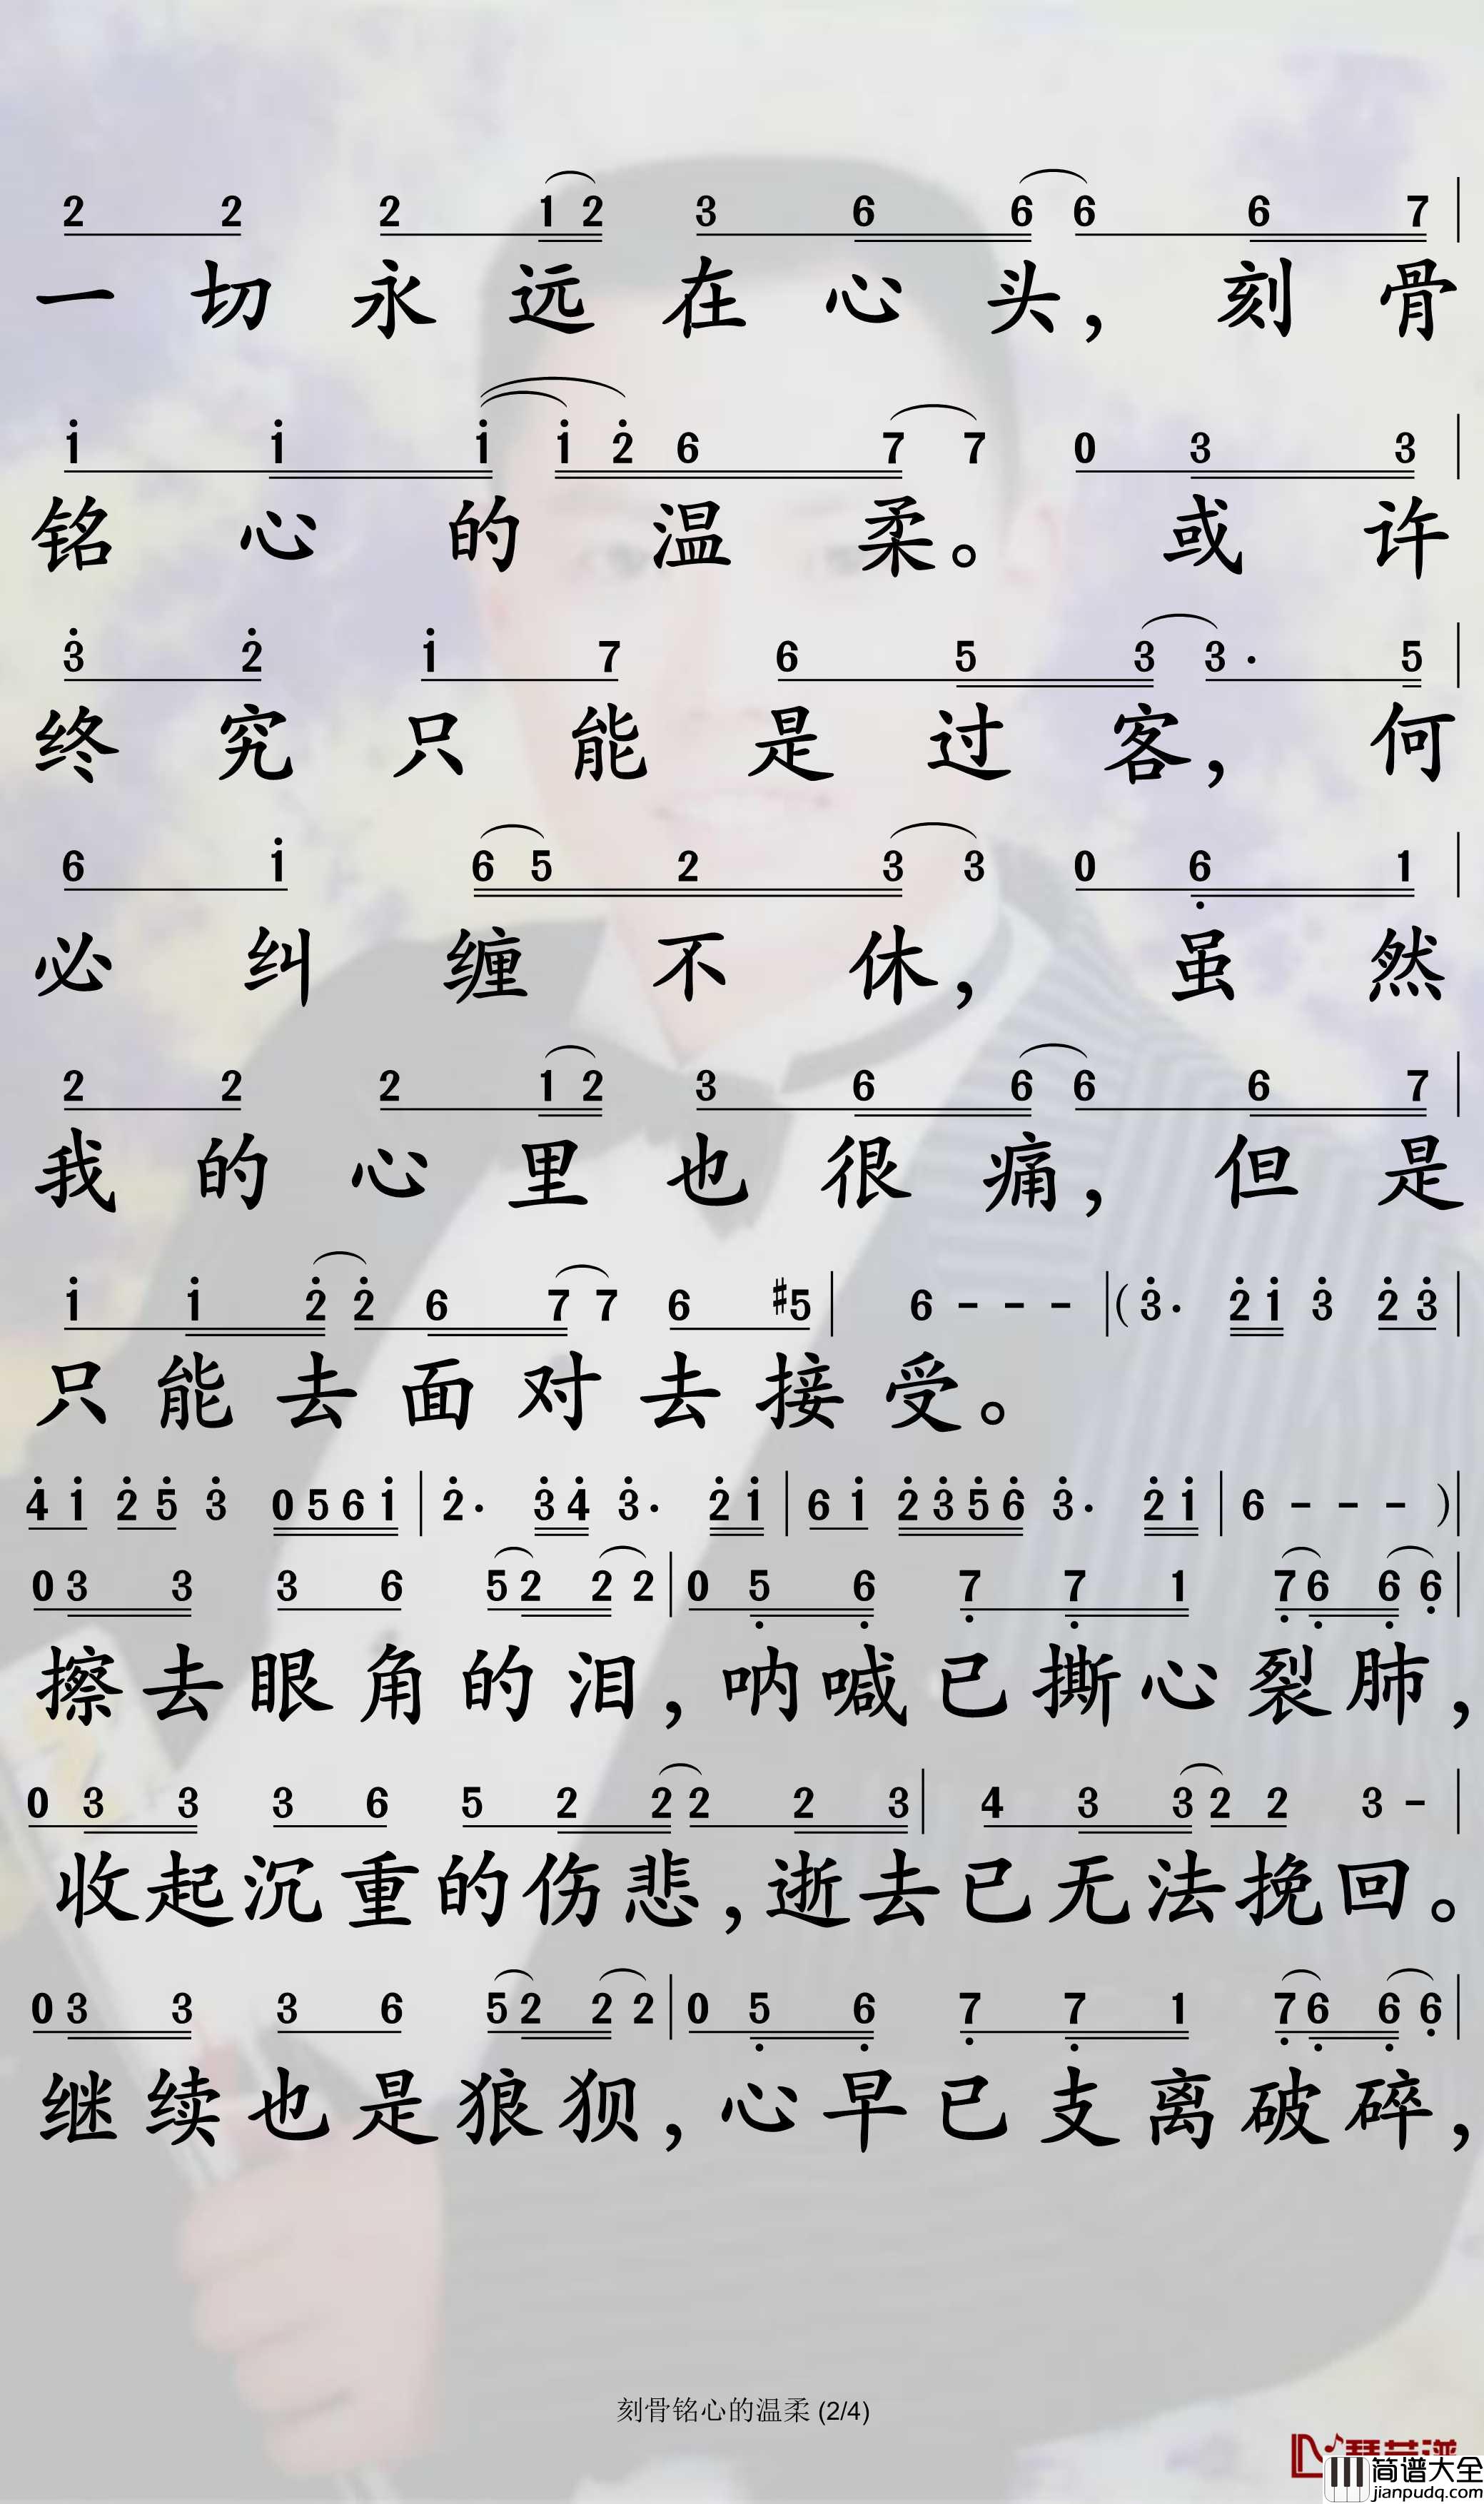 2 2 2 1 2 3 6 6 6 6 7 |
一切永远在心头，刻骨
1̇ 1̇ 1̇ 1̇ 2̇ 6 7 7 0 3 3 |
铭心的温柔。或许
3̇ 2̇ 1̇ 7 6 5 3 3· 5 |
终究只能是过客，何
6 1̇ 6 5 2 3 3 0 6̣ 1 |
必纠缠不休，虽然
2 2 2 1 2 3 6 6 6 6 7 |
我的心里也很痛，但是
1̇ 1̇ 2̇ 2̇ 6 7 7 6 #5 | 6 - - - | (3̇· 2̇ 1̇ 3̇ 2̇ 3̇ |
只能去面对去接受。
4̇ 1̇ 2̇ 5̇ 3̇ 0 5 6 1̇ | 2̇· 3̇ 4̇ 3̇· 2̇ 1̇ | 6 1̇ 2̇ 3̇ 5̇ 6̇ 3̇· 2̇ 1̇ | 6 - - - ) |
0 3 3 3 6 5 2 2 2 | 0 5̣ 6̣ 7̣ 7̣ 1 7̣ 6̣ 6̣ 6̣ |
擦去眼角的泪，呐喊已撕心裂肺，
0 3 3 3 6 5 2 2 2 2 3 | 4 3 3 2 2 3 - |
收起沉重的伤悲，逝去已无法挽回。
0 3 3 3 6 5 2 2 2 | 0 5̣ 6̣ 7̣ 7̣ 1 7̣ 6̣ 6̣ 6̣ |
继续也是狼狈，心早已支离破碎，
刻骨铭心的温柔 (2/4)
简谱大全
jianpudq.com